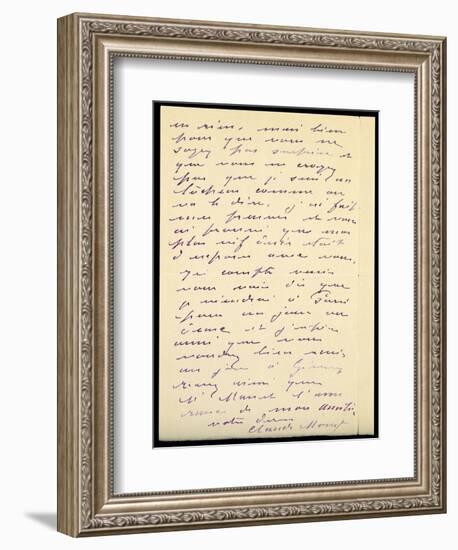 en rien, mais bien
pour que vous ne
soyez pas surprise et
que vous ne croyez
pas que je suis un
lâcheur comme on
va le dire. j'ai fait
mes preuves et vous
ai prouvé que mon
plus vif désir était
d'exposer avec vous.
je compte venir
vous voir dès que
je viendrai à Paris
pour un jour ou
deux et j'espère
aussi que vous
voudrez bien venir
un jour à Giverny
ainsi que
Mr Manet l'assu
rance de mon amitié
votre
Claude Monet